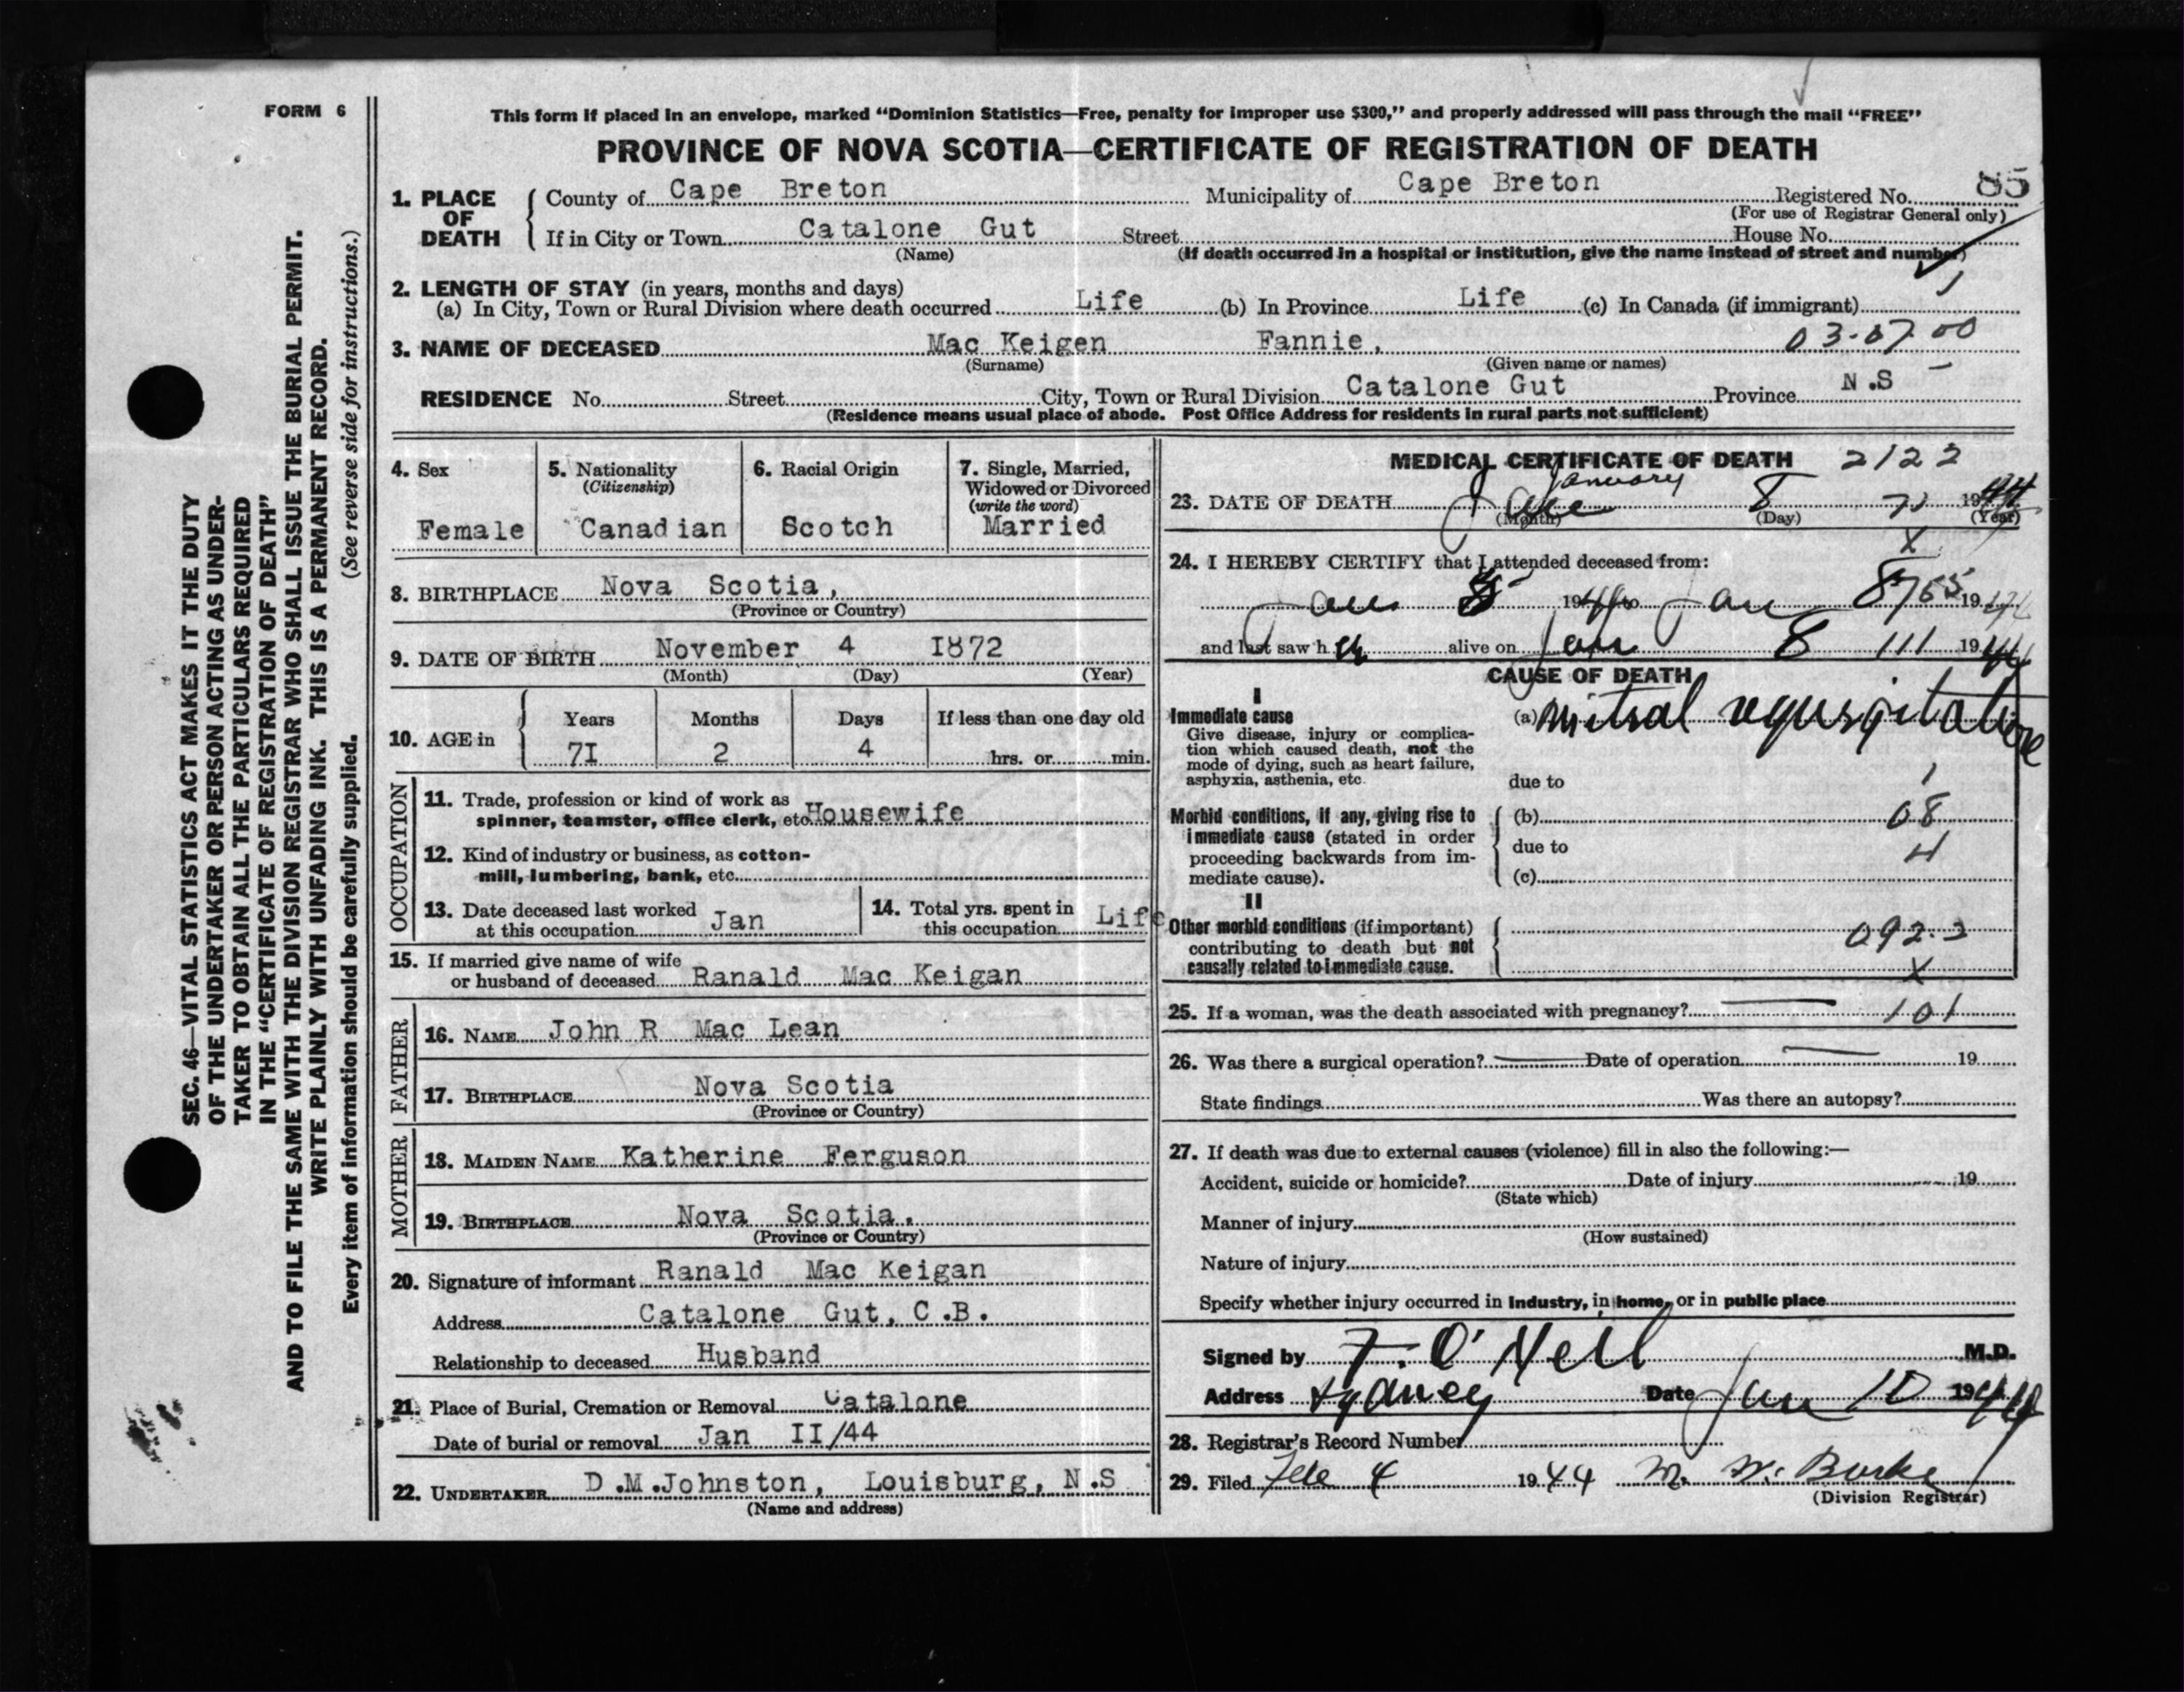 FORM 6
This form if placed in an envelope, marked “Dominion Statistics—Free, penalty for improper use $300,” and properly addressed will pass through the mail “FREE”
PROVINCE OF NOVA SCOTIA—CERTIFICATE OF REGISTRATION OF DEATH
85
1. PLACE OF DEATH County of Cape Breton Municipality of Cape Breton Registered No.
(For use of Registrar General only)
If in City or Town Catalone Gut Street House No.
(Name) (If death occurred in a hospital or institution, give the name instead of street and number)
2. LENGTH OF STAY (in years, months and days)
(a) In City, Town or Rural Division where death occurred Life (b) In Province Life (c) In Canada (if immigrant)
3. NAME OF DECEASED Mac Keigen Fannie, 03-07-00
(Surname) (Given name or names)
RESIDENCE No. Street City, Town or Rural Division Catalone Gut Province N.S
(Residence means usual place of abode. Post Office Address for residents in rural parts not sufficient)
4. Sex
Female
5. Nationality
(Citizenship)
Canadian
6. Racial Origin
Scotch
7. Single, Married,
Widowed or Divorced
(write the word)
Married
8. BIRTHPLACE Nova Scotia,
(Province or Country)
9. DATE OF BIRTH November 4 I872
(Month) (Day) (Year)
10. AGE in Years Months Days If less than one day old
7I 2 4 hrs. or min.
OCCUPATION
11. Trade, profession or kind of work as
spinner, teamster, office clerk, etc Housewife
12. Kind of industry or business, as cotton-
mill, lumbering, bank, etc.
13. Date deceased last worked
at this occupation Jan
14. Total yrs. spent in
this occupation Life
15. If married give name of wife
or husband of deceased Ranald Mac Keigan
FATHER
16. NAME John R Mac Lean
17. BIRTHPLACE Nova Scotia
(Province or Country)
MOTHER
18. MAIDEN NAME Katherine Ferguson
19. BIRTHPLACE Nova Scotia.
(Province or Country)
20. Signature of informant Ranald Mac Keigan
Address Catalone Gut, C.B.
Relationship to deceased Husband
21. Place of Burial, Cremation or Removal Catalone
Date of burial or removal Jan II/44
22. UNDERTAKER D.M.Johnston, Louisburg, N.S
(Name and address)
MEDICAL CERTIFICATE OF DEATH 2122
January
23. DATE OF DEATH Jan 8 1944
(Month) (Day) (Year)
24. I HEREBY CERTIFY that I attended deceased from:
Jan 1944 to Jan 8 1944
and last saw h er alive on Jan 8 1944
CAUSE OF DEATH
I
Immediate cause
Give disease, injury or complica-
tion which caused death, not the
mode of dying, such as heart failure,
asphyxia, asthenia, etc.
(a) mitral regurgitation
due to
Morbid conditions, if any, giving rise to
immediate cause (stated in order
proceeding backwards from im-
mediate cause).
(b) 08
due to 4
(c)
II
Other morbid conditions (if important)
contributing to death but not
causally related to immediate cause.
092.
X
25. If a woman, was the death associated with pregnancy? — 101
26. Was there a surgical operation? — Date of operation — 19
State findings Was there an autopsy?
27. If death was due to external causes (violence) fill in also the following:—
Accident, suicide or homicide? Date of injury 19
(State which)
Manner of injury
(How sustained)
Nature of injury
Specify whether injury occurred in industry, in home, or in public place
Signed by F. O'Neil M.D.
Address Sydney Date Jan 10 1944
28. Registrar's Record Number
29. Filed Feb 4 1944 M. W. Burke
(Division Registrar)
SEC. 46—VITAL STATISTICS ACT MAKES IT THE DUTY
OF THE UNDERTAKER OR PERSON ACTING AS UNDER-
TAKER TO OBTAIN ALL THE PARTICULARS REQUIRED
IN THE “CERTIFICATE OF REGISTRATION OF DEATH”
AND TO FILE THE SAME WITH THE DIVISION REGISTRAR WHO SHALL ISSUE THE BURIAL PERMIT.
WRITE PLAINLY WITH UNFADING INK. THIS IS A PERMANENT RECORD.
Every item of information should be carefully supplied. (See reverse side for instructions.)